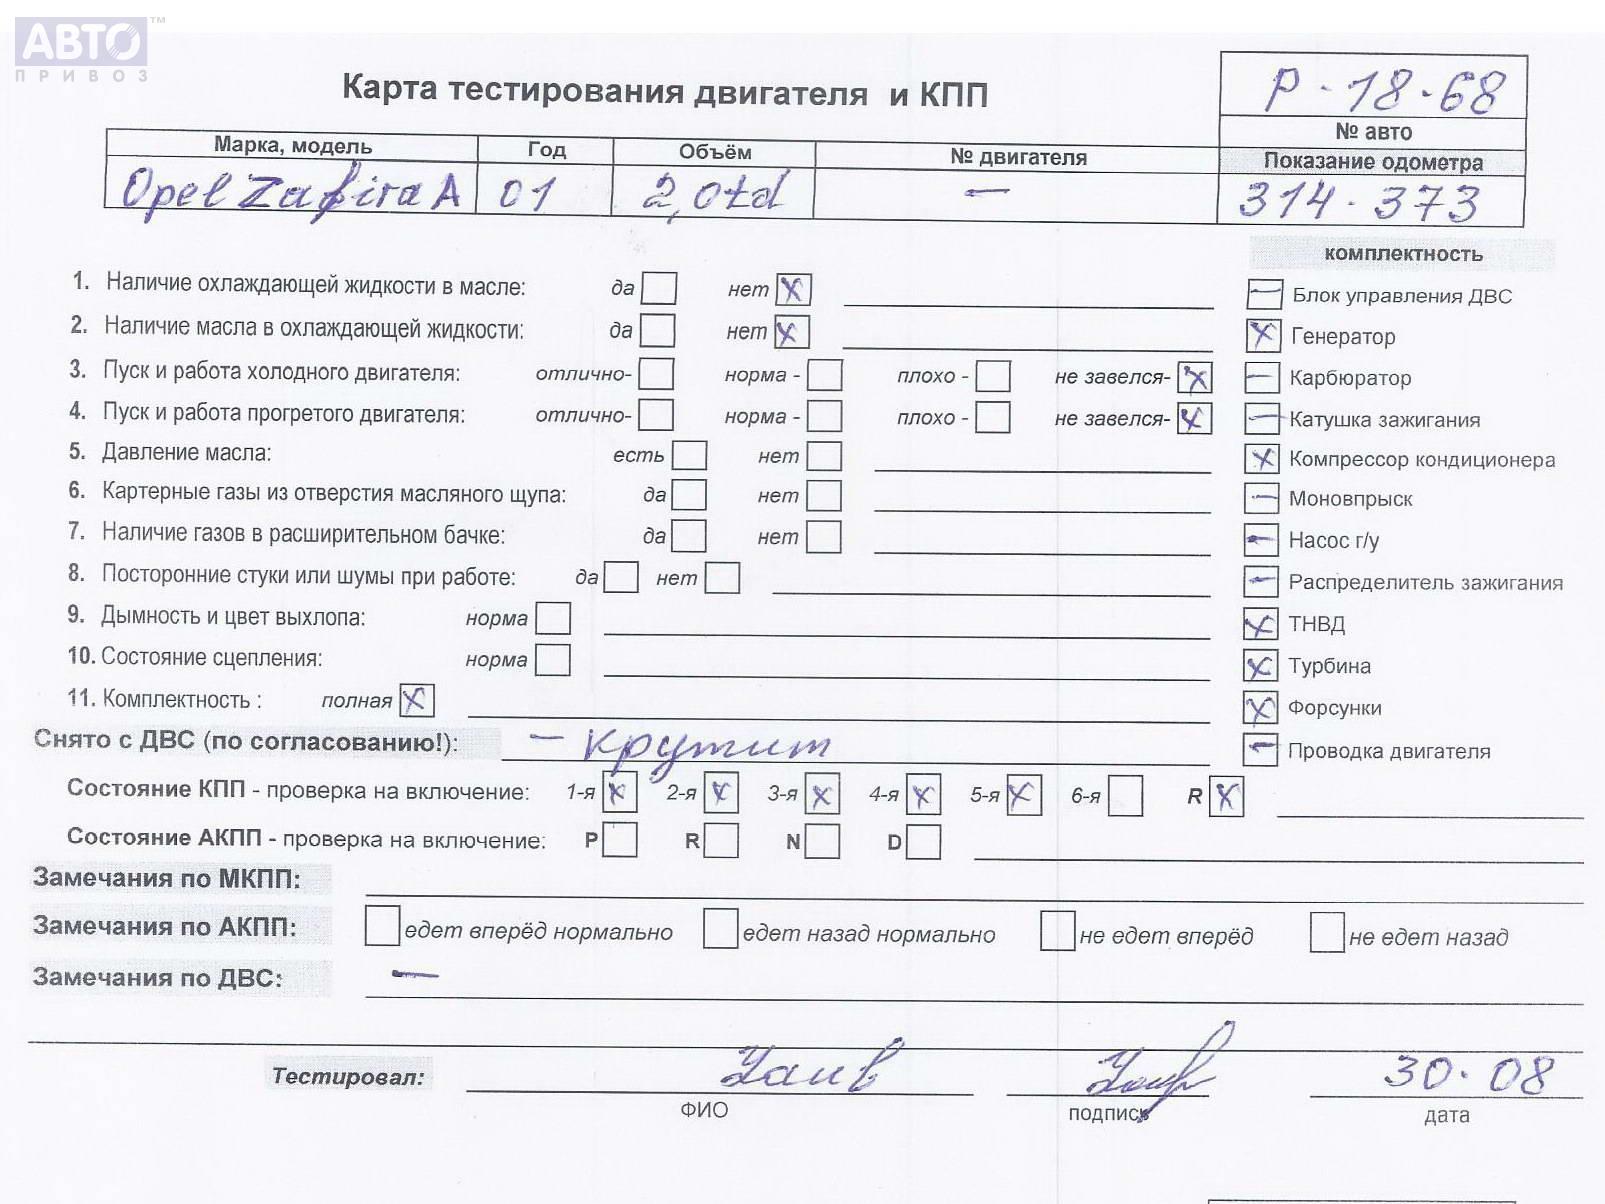 АВТО™
ПРИВОЗ
Карта тестирования двигателя и КПП
Р-18-68
№ авто
Марка, модель Год Объём № двигателя Показание одометра
Opel Zafira A 01 2,0td — 314.373
комплектность
1. Наличие охлаждающей жидкости в масле: да нет x
Блок управления ДВС
2. Наличие масла в охлаждающей жидкости: да нет x
Генератор
3. Пуск и работа холодного двигателя: отлично- норма - плохо - не завелся- x
Карбюратор
4. Пуск и работа прогретого двигателя: отлично- норма - плохо - не завелся- x
Катушка зажигания
5. Давление масла: есть нет
Компрессор кондиционера
6. Картерные газы из отверстия масляного щупа: да нет
Моновпрыск
7. Наличие газов в расширительном бачке: да нет
Насос г/у
8. Посторонние стуки или шумы при работе: да нет
Распределитель зажигания
9. Дымность и цвет выхлопа: норма
ТНВД
10. Состояние сцепления: норма
Турбина
11. Комплектность : полная x
Форсунки
Снято с ДВС (по согласованию!): – крутит
Проводка двигателя
Состояние КПП - проверка на включение: 1-я x 2-я x 3-я x 4-я x 5-я x 6-я R x
Состояние АКПП - проверка на включение: P R N D
Замечания по МКПП:
Замечания по АКПП: едет вперёд нормально едет назад нормально не едет вперёд не едет назад
Замечания по ДВС: —
Тестировал: 30.08
ФИО подпись дата